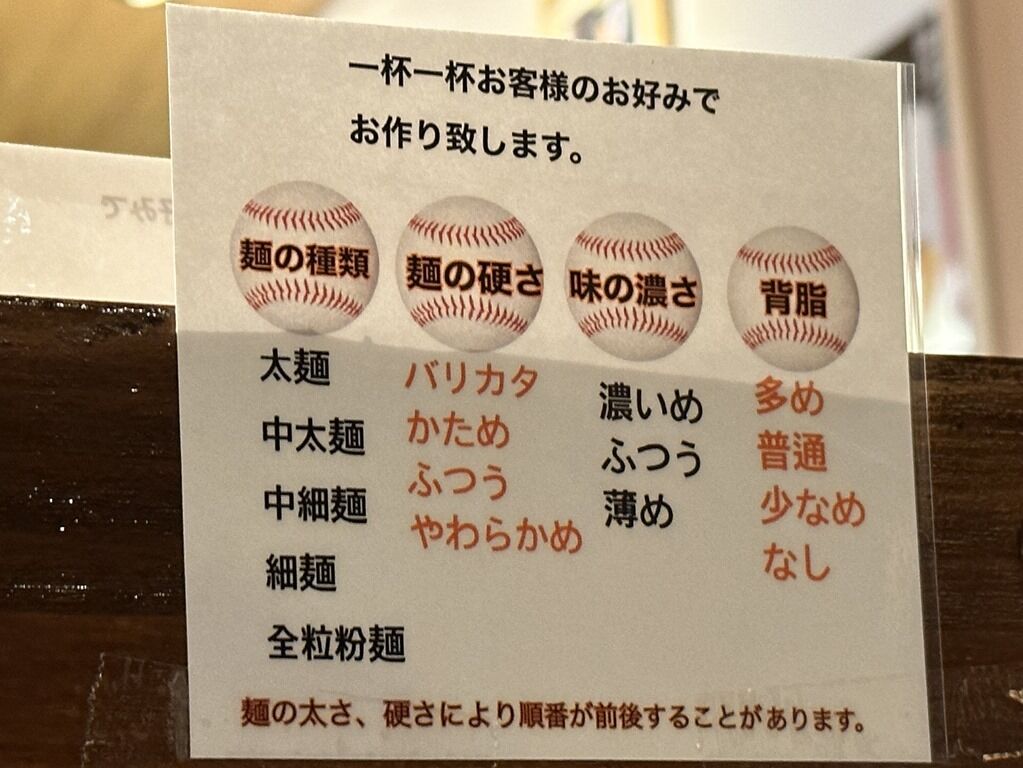 一杯一杯お客様のお好みで
お作り致します。
麺の種類
太麺
中太麺
中細麺
細麺
全粒粉麺
麺の硬さ
バリカタ
かため
ふつう
やわらかめ
味の濃さ
濃いめ
ふつう
薄め
背脂
多め
普通
少なめ
なし
麺の太さ、硬さにより順番が前後することがあります。